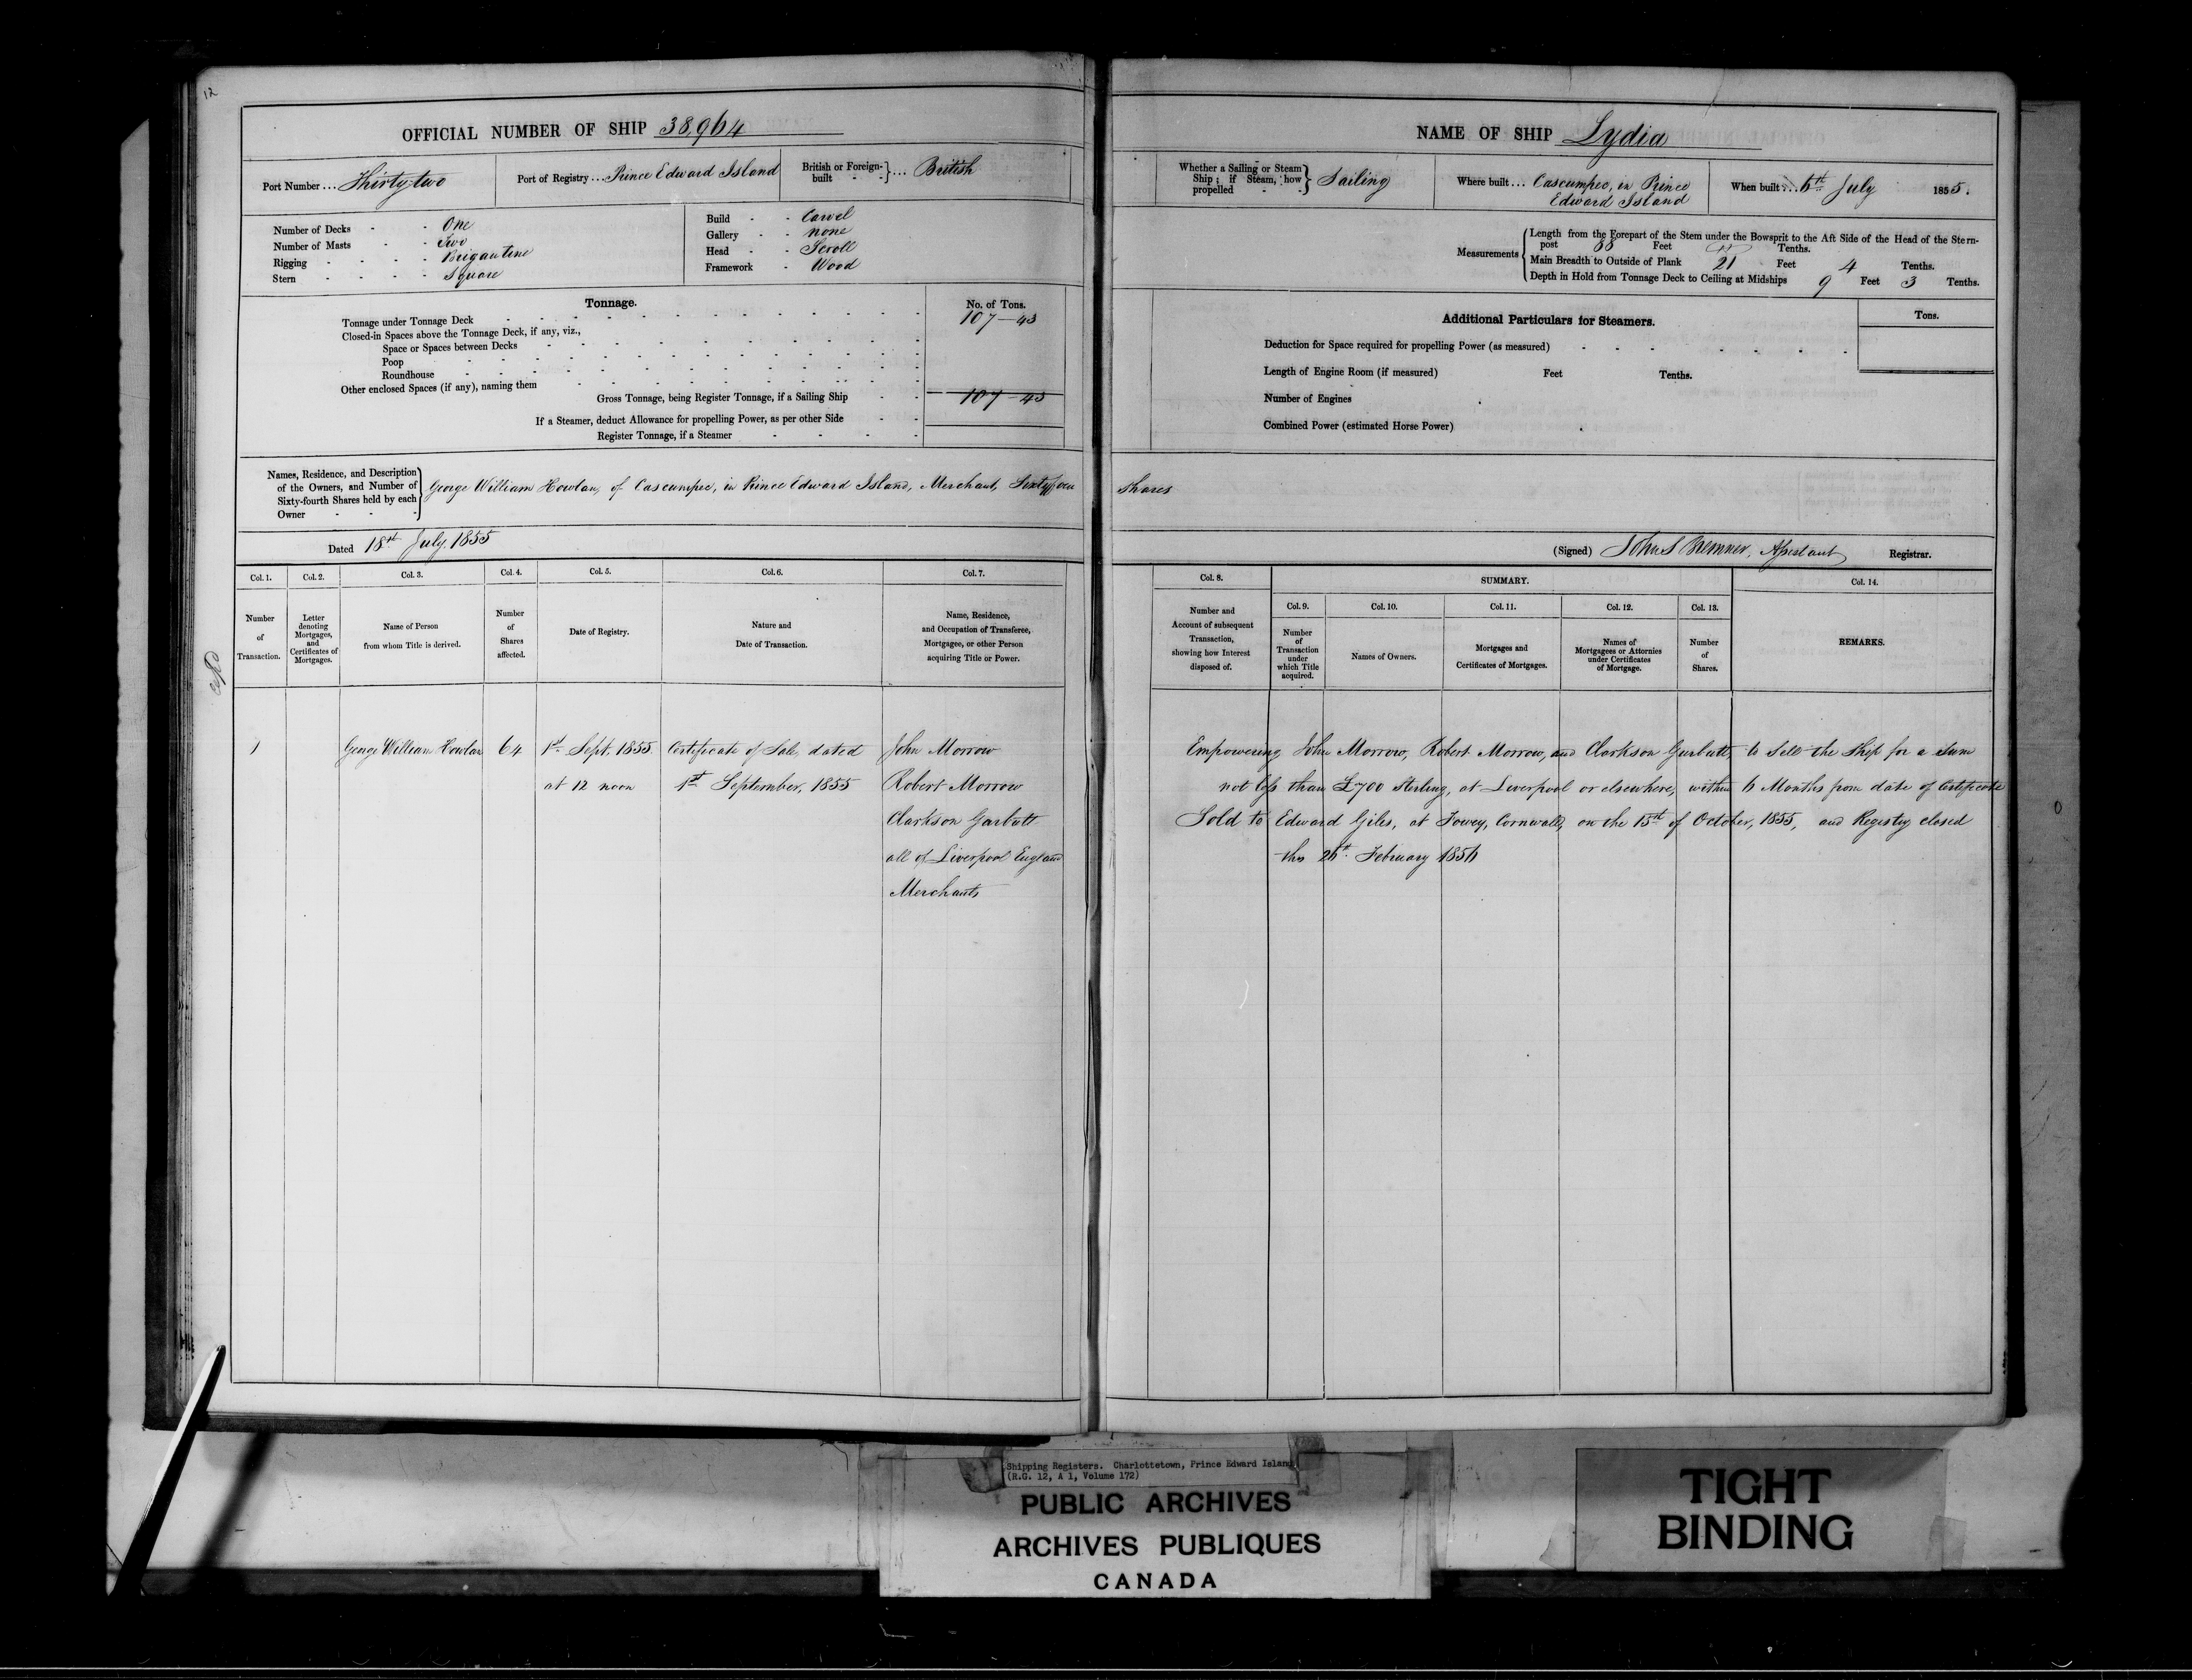 12
OFFICIAL NUMBER OF SHIP 38,964
Port Number ... Thirty two
Port of Registry ... Prince Edward Island
British or Foreign-built } ... British
Number of Decks - One
Number of Masts - Two
Rigging - Brigantine
Stern - Square
Build - Carvel
Gallery - none
Head - Scroll
Framework - Wood
Tonnage.
No. of Tons.
Tonnage under Tonnage Deck 107-43
Closed-in Spaces above the Tonnage Deck, if any, viz.,
Space or Spaces between Decks
Poop
Roundhouse
Other enclosed Spaces (if any), naming them
Gross Tonnage, being Register Tonnage, if a Sailing Ship 107-43
If a Steamer, deduct Allowance for propelling Power, as per other Side
Register Tonnage, if a Steamer
Names, Residence, and Description of the Owners, and Number of Sixty-fourth Shares held by each Owner } George William Howlan, of Cascumpec, in Prince Edward Island, Merchant, Sixty four
Dated 18th July, 1855
Col. 1.
Number of Transaction.
Col. 2.
Letter denoting Mortgages, and Certificates of Mortgages.
Col. 3.
Name of Person from whom Title is derived.
Col. 4.
Number of Shares affected.
Col. 5.
Date of Registry.
Col. 6.
Nature and Date of Transaction.
Col. 7.
Name, Residence, and Occupation of Transferee, Mortgagee, or other Person acquiring Title or Power.
1 George William Howlan 64 1st Sept. 1855 Certificate of Sale dated John Morrow
at 12 noon 1st September, 1855 Robert Morrow
Clarkson Garbutt
all of Liverpool England
Merchants
NAME OF SHIP Lydia
Whether a Sailing or Steam Ship; if Steam, how propelled } Sailing
Where built ... Cascumpec, in Prince Edward Island
When built ... 6th July 1855.
Measurements
Length from the Forepart of the Stem under the Bowsprit to the Aft Side of the Head of the Stern-
post 88 Feet Tenths.
Main Breadth to Outside of Plank 21 Feet 4 Tenths.
Depth in Hold from Tonnage Deck to Ceiling at Midships 9 Feet 3 Tenths.
Additional Particulars for Steamers.
Tons.
Deduction for Space required for propelling Power (as measured)
Length of Engine Room (if measured) Feet Tenths.
Number of Engines
Combined Power (estimated Horse Power)
Shares
(Signed) John S Bremner, Assistant Registrar.
Col. 8.
Number and Account of subsequent Transaction, showing how Interest disposed of.
SUMMARY.
Col. 9.
Number of Transaction under which Title acquired.
Col. 10.
Names of Owners.
Col. 11.
Mortgages and Certificates of Mortgages.
Col. 12.
Names of Mortgagees or Attornies under Certificates of Mortgage.
Col. 13.
Number of Shares.
Col. 14.
REMARKS.
Empowering John Morrow, Robert Morrow, and Clarkson Garbutt, to Sell the Ship for a Sum
not less than £700 Sterling, at Liverpool or elsewhere, within 6 Months from date of Certificate
Sold to Edward Giles, at Fowey, Cornwall, on the 15th of October, 1855, and Registry closed
this 26th February 1856
Shipping Registers. Charlottetown, Prince Edward Island
(R.G. 12, A 1, Volume 172)
PUBLIC ARCHIVES
ARCHIVES PUBLIQUES
CANADA
TIGHT
BINDING